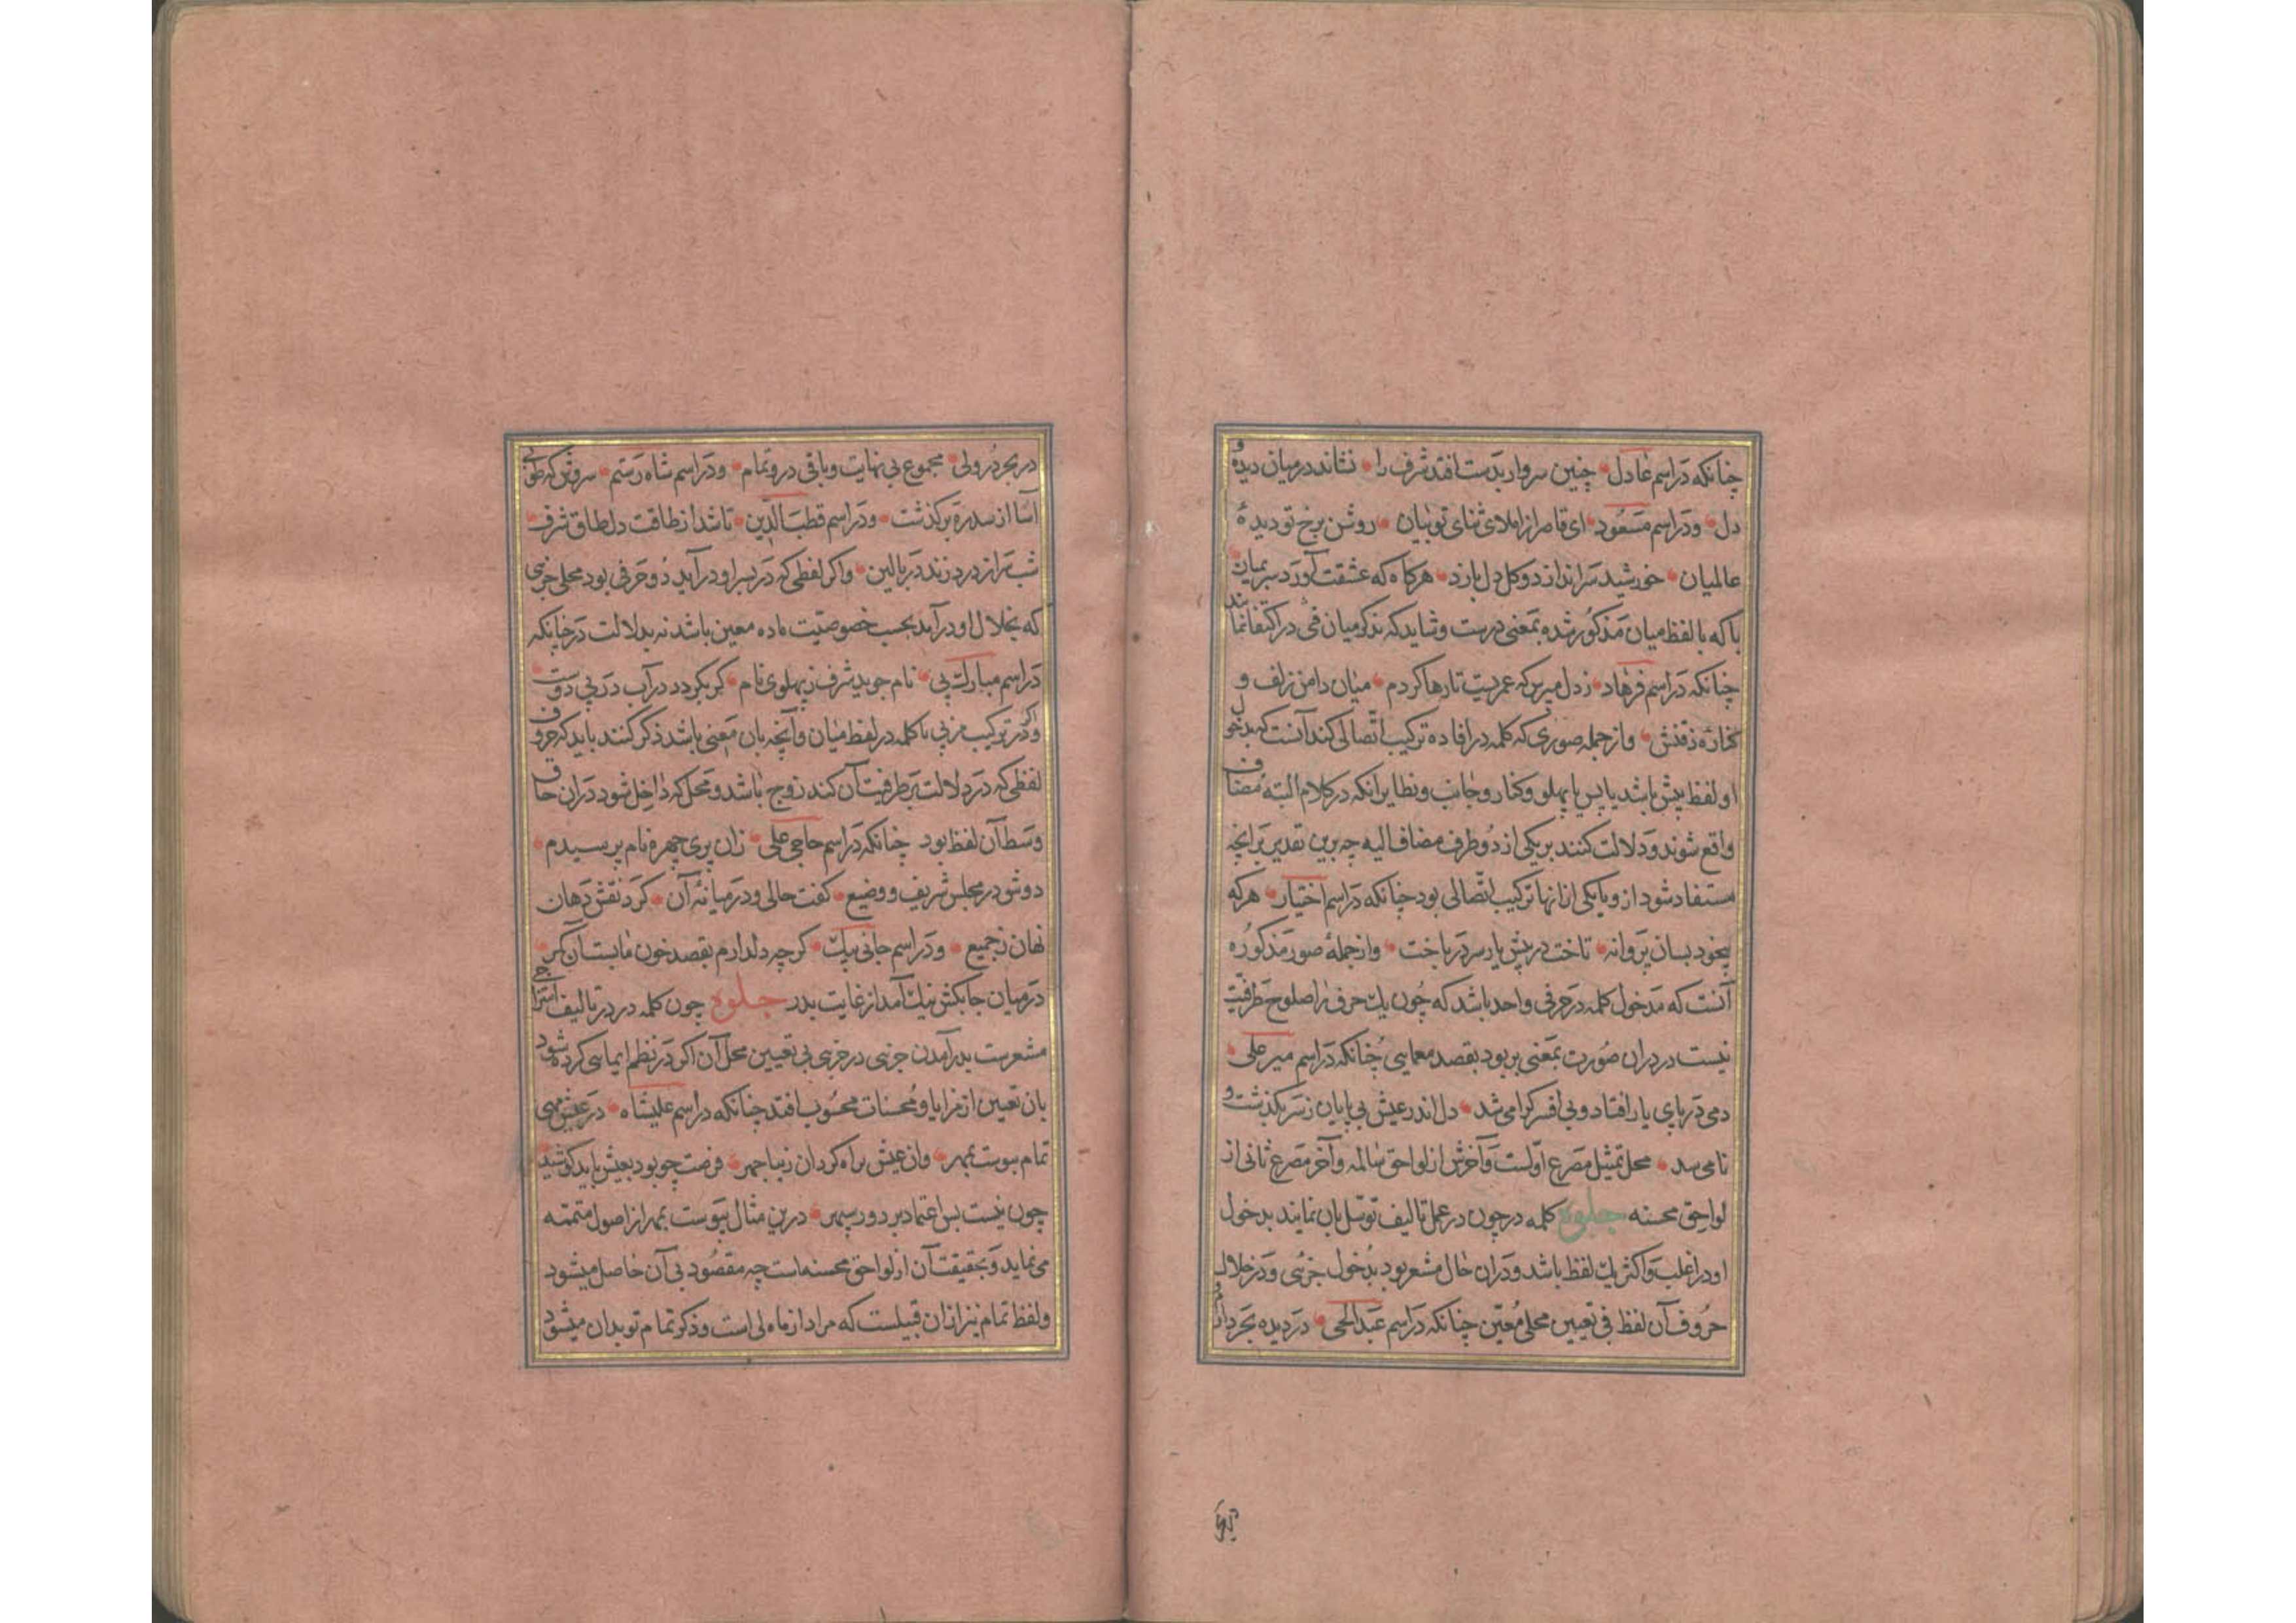 چنانکه در اسم عادل چنین سروار بدست افتد شرف را نشاند در میان دیده و
دل ودر اسم مسعود ای قاصر از املای ثنای تو بیان روشن برخ تو دیدهٔ
عالمیان خورشید سر اندازد و کل دل بازد هرکاه که عشقت آورد سر بمیان
یا که با لفظ میان مذکور شده بمعنی درست وشاید که بذکر میان فی در اکتفا نمایند
چنانکه در اسم فرهاد ز دل مپرس که عمریست تا رها کردم میان دامن زلف و
کناره ذقنش واز جمله صوری که کلمه در افاده ترکیب اتصالی کند آنست که مدخول
او لفظ پیش باشد یا پس یا پهلو وکنار وجانب ونظایر انکه در کلام البته مضاف
واقع شوند ودلالت کنند بر یکی از دو طرف مضاف الیه چه برین تقدیر برانچه
مستفاد شود از و با یکی از انها ترکیب اتصالی بود چنانکه در اسم اختیار هرکه
بیخود بسان پروانه تاخت در پیش یار سر در باخت واز جملهٔ صور مذکوره
آنست که مدخول کلمه در حرفی واحد باشد که چون یک حرف را صلوح ظرفیت
نیست در دران صورت بمعنی بر بود بقصد معمایی چنانکه در اسم میر علی
دمی در پای یار افتاد وبی افسر کرامی شد دل اندر عیش بی پایان ز سر بکذشت و
نامی شد محل تمثیل مصرع اولست وآخرش از لواحق سالمه وآخر مصرع ثانی از
لواحق محسنه جلوه کلمه در چون در عمل تالیف توسل بان نمایند بدخول
او در اغلب واکثر یک لفظ باشد ودران حال مشعر بود بدخول جزئی ودر خلال
حروف آن لفظ فی تعیین محلی معین چنانکه در اسم عبدالحی در دیده بجر
در بحر در ولی مجموع بی نهایت وباقی درو تمام ودر اسم شاه رستم سروش که طوبی
آسا از سدره برکذشت ودر اسم قطب الدین تا شد از طاقت دل طاق شرف
شب سر از درد زند در بالین واکر لفظی که در بسر او در آید دو حرفی بود محلی جزئی
که بخلال او در آید بحسب خصوصیت ماده معین باشد نه بدلالت در چنانکه
در اسم مبارک پی نام جوید شرف ز پهلوی نام کر بکردد در آب در پی دوست
واکر در ترکیب مزبی با کلمه در لفظ میان وآنچه بان معنی باشد ذکر کنند باید که حروف
لفظی که در دلالت بر ظرفیت آن کند زوج باشد ومحل که داخل شود دران حاق
وسط آن لفظ بود چنانکه در اسم حاجی علی زان پری چهره نام پرسیدم
دوش در مجلس شریف ووضیع کفت حالی ودر میانهٔ آن کرد نقش دهان
نهان ز جمیع ودر اسم جانی بیک کرچه دلدارم بقصد خون ما بست آن کمر
در میان جابکش نیک آمد از غایت بدر جلوه چون کلمه در در تالیف امتزاجی
مشعرست بدر آمدن جزئی در جزئی بی تعیین محل آن اکر در نظم ایمایی کرده شود
بان تعیین از مزایا ومحسنات محسوب افتد چنانکه در اسم علیشاه در عیش مهی
تمام پیوست بمهر وان عیش براه کرد ان زیبا چهر فرصت چو بود بعیش باید کوشید
چون نیست بس اعتماد بر دور سپهر درین مثال پیوست بمهر از اصول متممه
می نماید وبحقیقت آن از لواحق محسنه است چه مقصود بی آن حاصل میشود
ولفظ تمام نیز ازان قبیلست که مراد از ماه لی است وذکر تمام تو بدان میشود